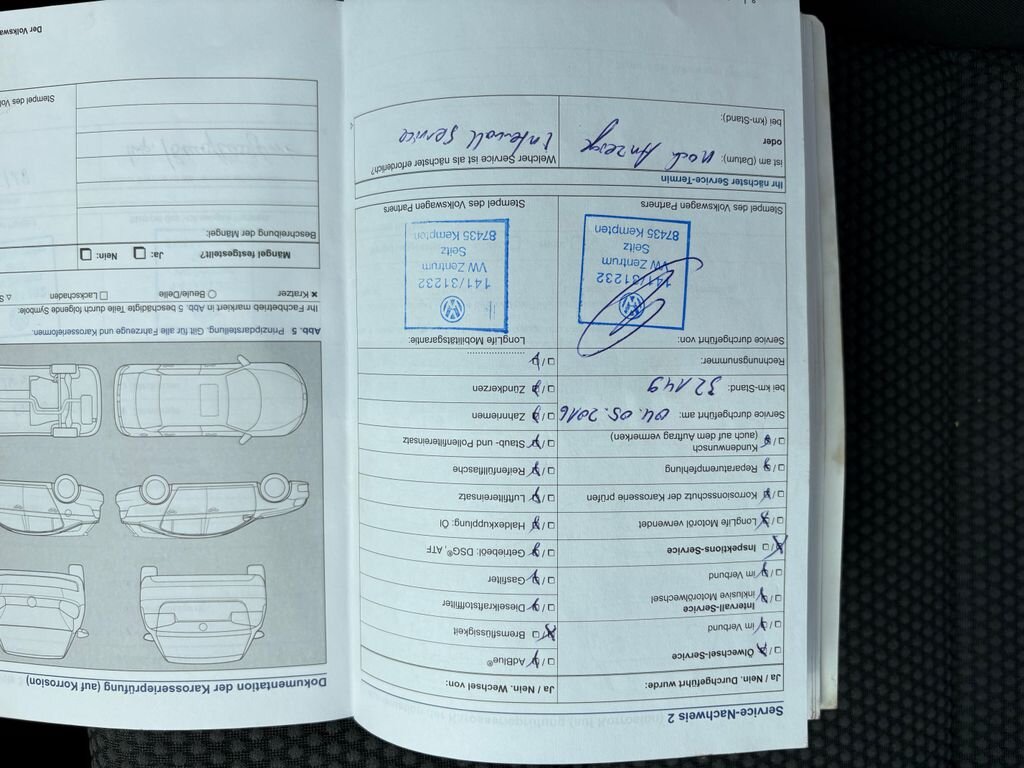 Service-Nachweis 2
Ja / Nein. Durchgeführt wurde:
Ölwechsel-Service
im Verbund
Intervall-Service
inklusive Motorölwechsel
im Verbund
Inspektions-Service
LongLife Motoröl verwendet
Korrosionsschutz der Karosserie prüfen
Reparaturempfehlung
Kundenwunsch
(auch auf dem Auftrag vermerken)
Service durchgeführt am: 04.05.2016
bei km-Stand: 32149
Rechnungsnummer:
Service durchgeführt von:
141/31232
VW Zentrum
Seitz
87435 Kempten
Stempel des Volkswagen Partners
Ja / Nein. Wechsel von:
AdBlue®
Bremsflüssigkeit
Dieselkraftstofffilter
Gasfilter
Getriebeöl: DSG®, ATF
Haldexkupplung: Öl
Luftfiltereinsatz
Reifenfüllflasche
Staub- und Pollenfiltereinsatz
Zahnriemen
Zündkerzen
LongLife Mobilitätsgarantie:
141/31232
VW Zentrum
Seitz
87435 Kempten
Stempel des Volkswagen Partners
Ihr nächster Service-Termin
ist am (Datum): nach Anzeige
oder
bei (km-Stand):
Welcher Service ist als nächster erforderlich?
Intervall Service
Dokumentation der Karosserieprüfung (auf Korrosion)
Abb. 5 Prinzipdarstellung. Gilt für alle Fahrzeuge und Karosserieformen.
Ihr Fachbetrieb markiert in Abb. 5 beschädigte Teile durch folgende Symbole:
Kratzer
Beule/Delle
Lackschaden
Mängel festgestellt?
Ja:
Nein:
Beschreibung der Mängel:
Stempel des
Der